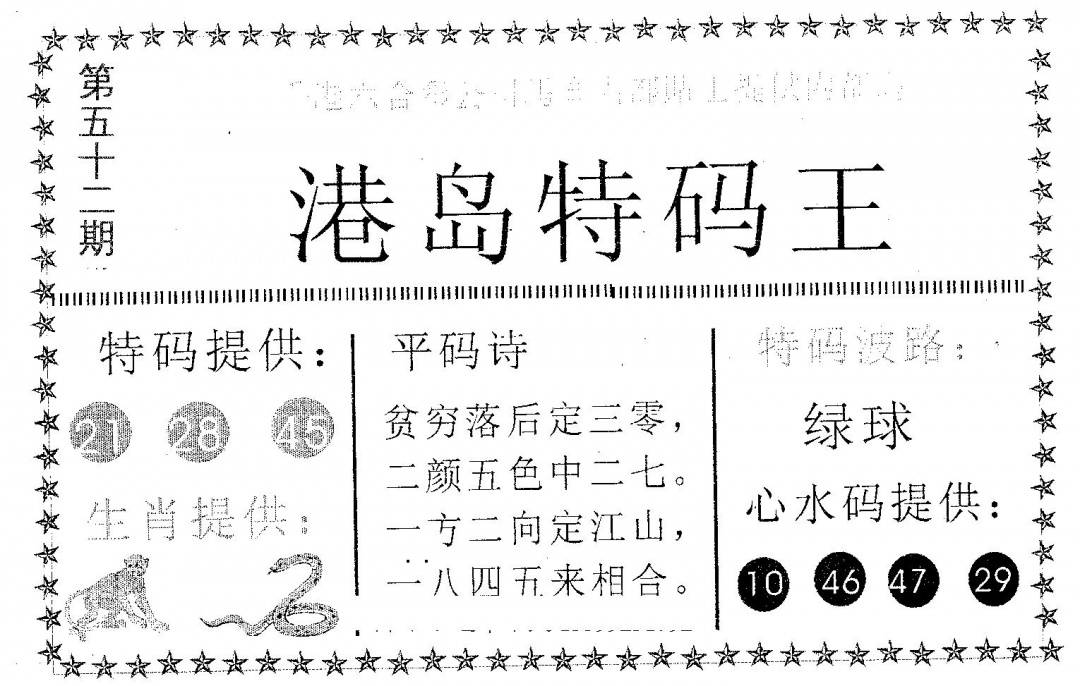 第五十二期
港岛特码王
特码提供：
21 28 45
生肖提供：
平码诗
贫穷落后定三零，
二颜五色中二七。
一方二向定江山，
一八四五来相合。
特码波路：
绿球
心水码提供：
10 46 47 29